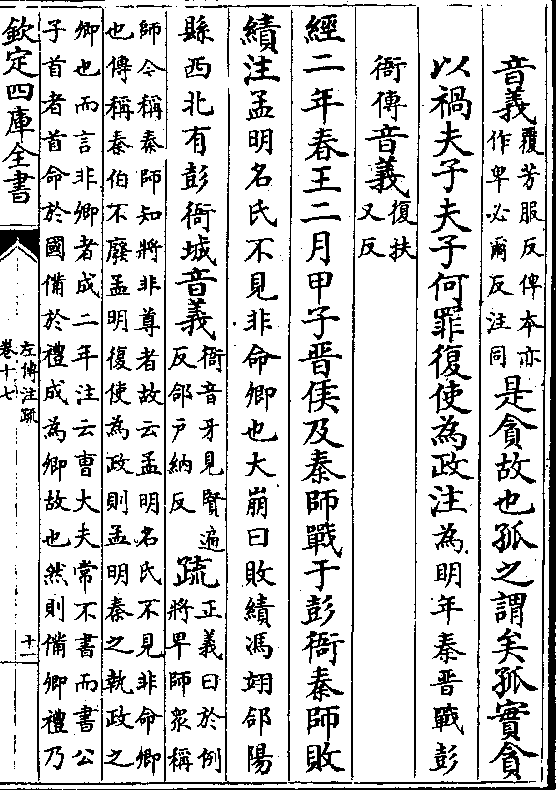 音義覆芳服反俾本亦
作卑必爾反注同是貪故也孤之謂矣孤實貪
以禍夫子夫子何罪復使為政注為明年秦晉戰彭
衙傳音義復扶
又反
經二年春王二月甲子晉侯及秦師戰于彭衙秦師敗
績注孟明名氏不見非命卿也大崩曰敗績馮翊郃陽
縣西北有彭衙城音義衙音牙見賢遍
反郃戸納反疏正義曰於例
將卑師衆稱
師今稱秦師知將非尊者故云孟明名氏不見非命卿
也傳稱秦伯不廢孟明復使為政則孟明秦之執政之
卿也而言非卿者成二年注云曹大夫常不書而書公
子首者首命於國備於禮成為卿故也然則備卿禮乃
欽定四庫全書
左傳注疏
卷十七
十一